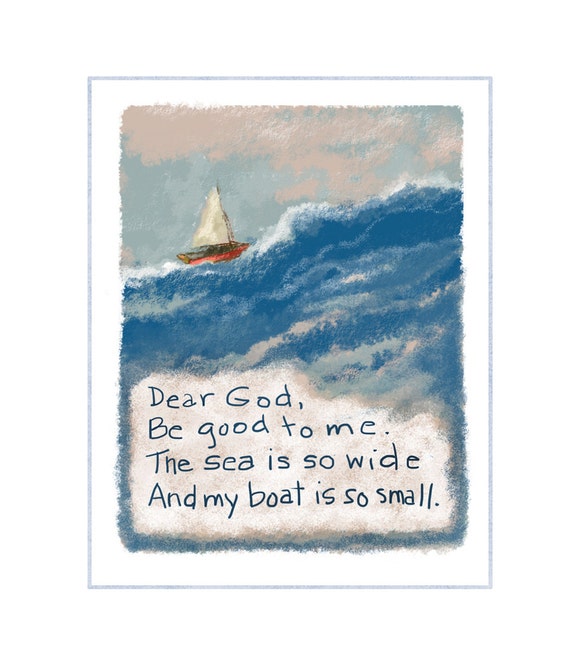 Dear God,
Be good to me.
The sea is so wide
And my boat is so small.